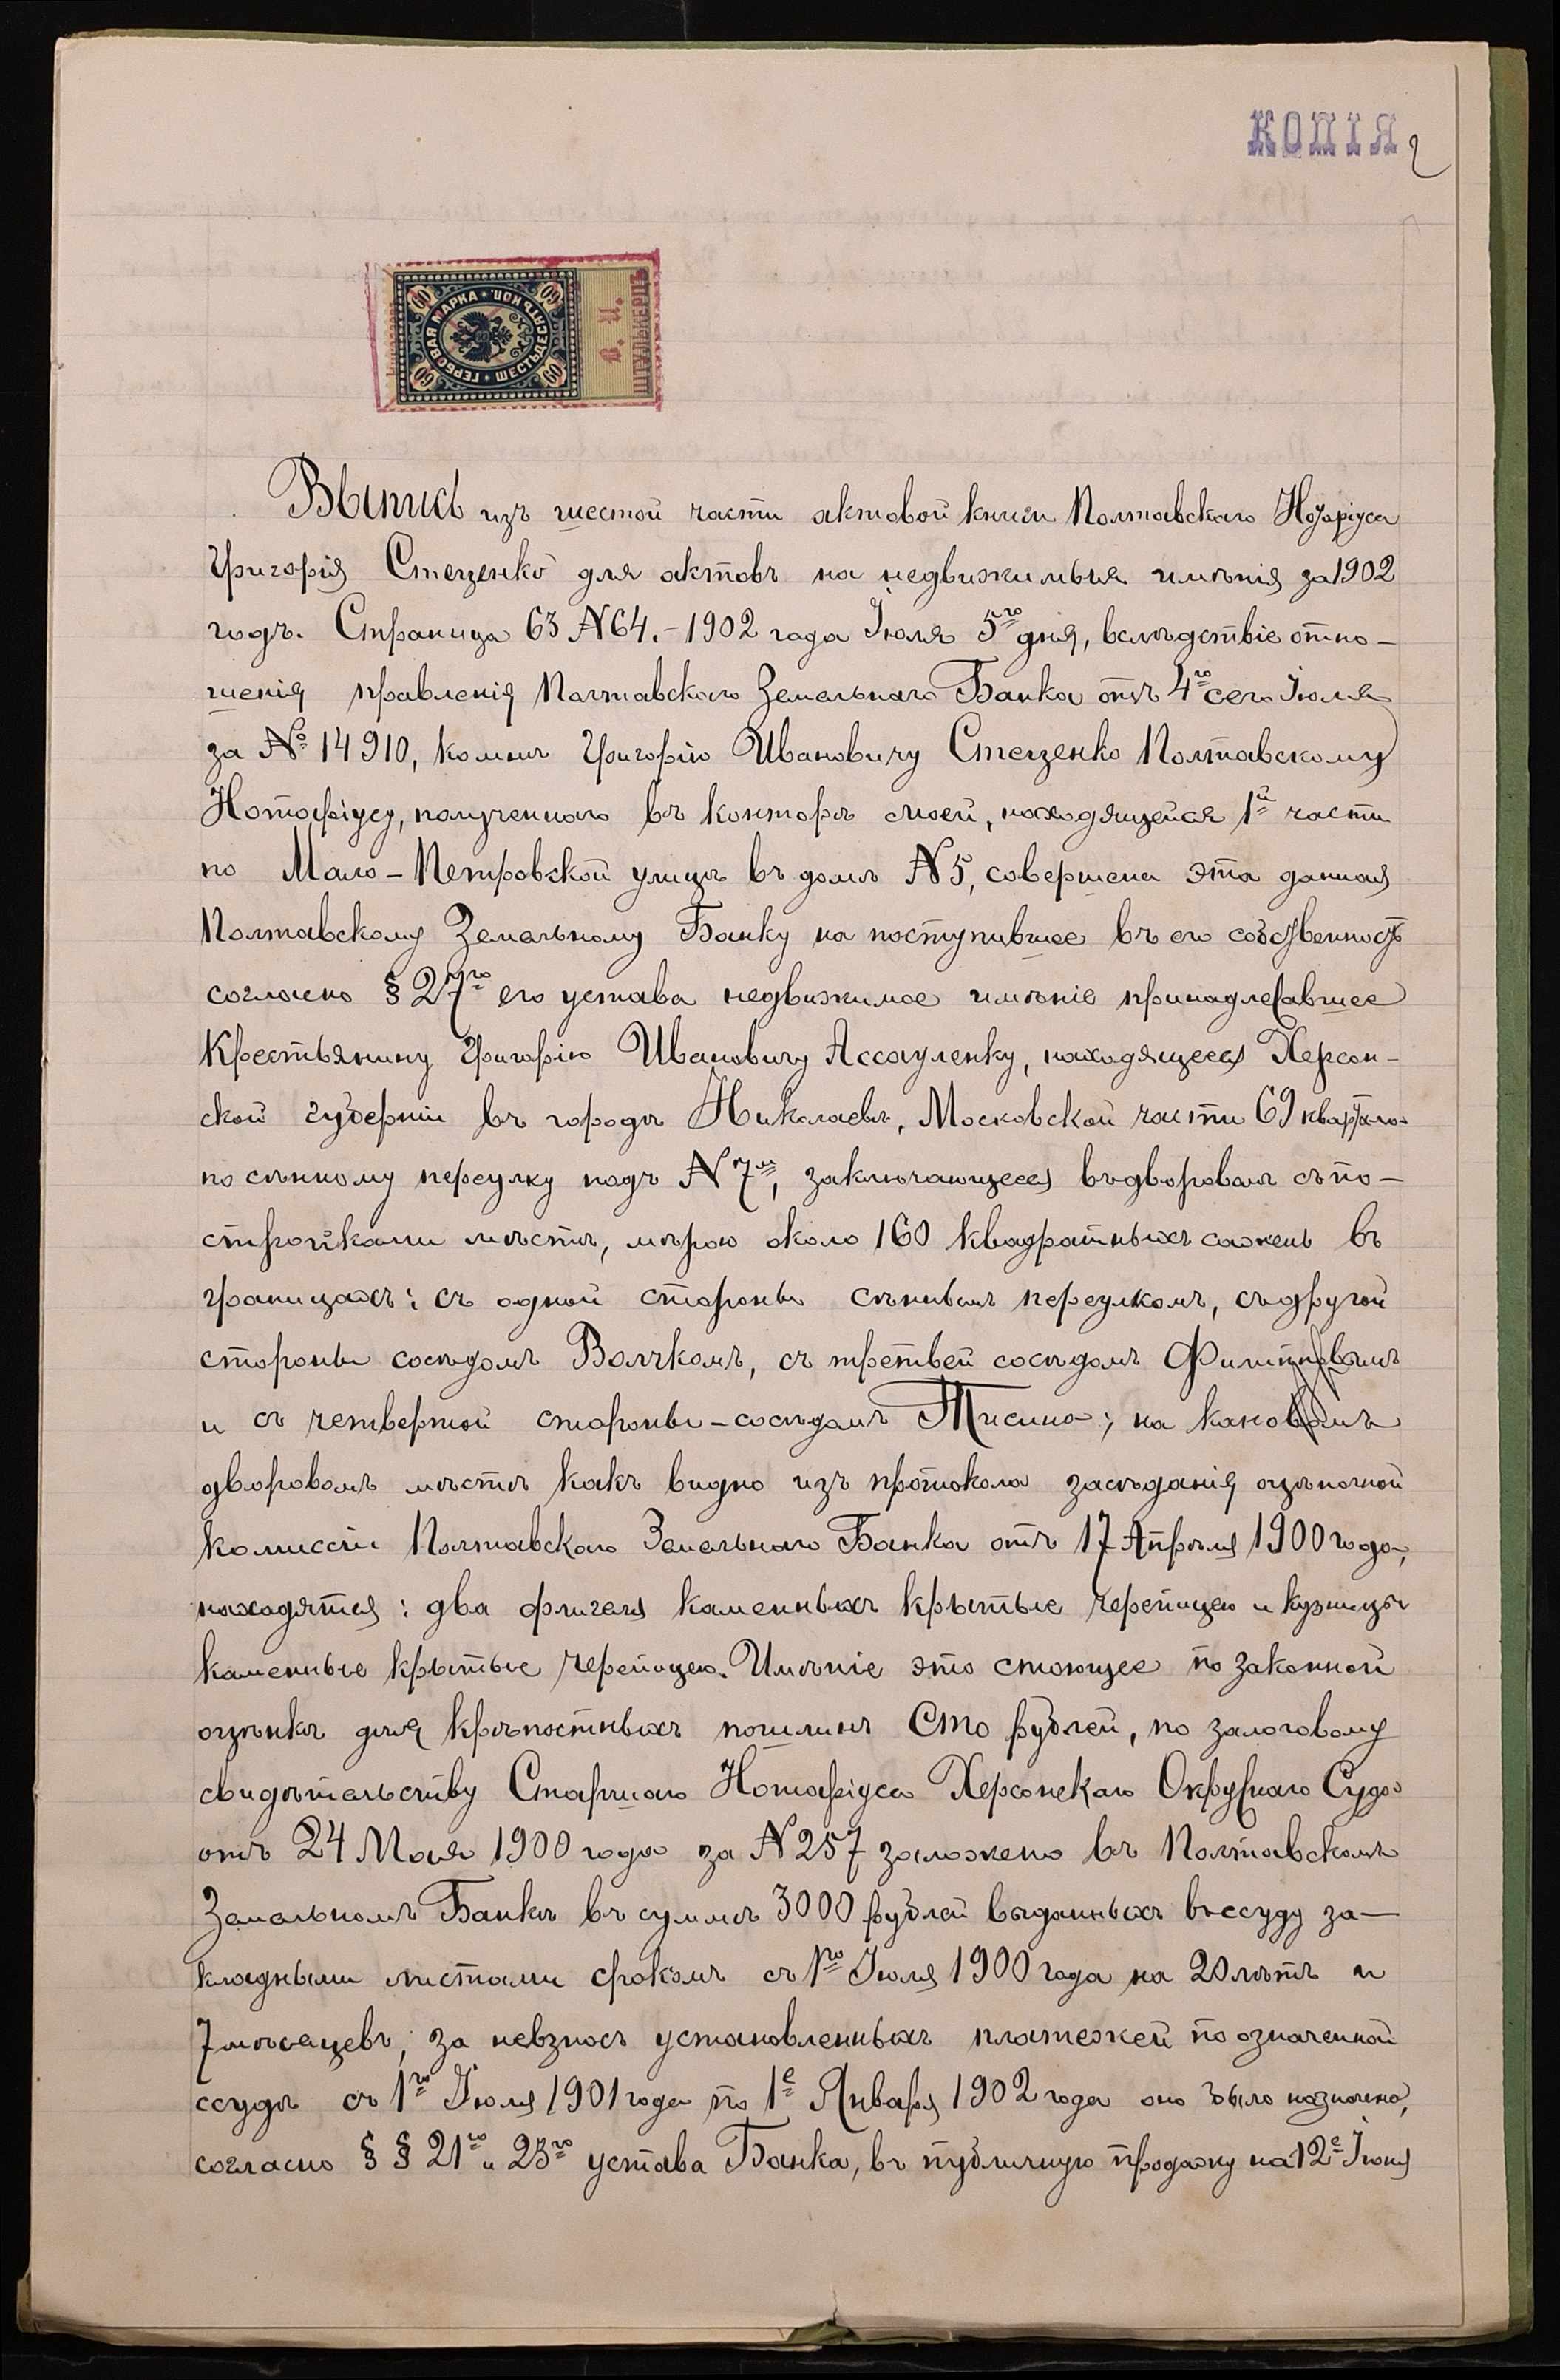 КОПІЯ 2
ГЕРБОВАЯ МАРКА • ШЕСТЬДЕСЯТЪ КОП.
60 60 60 60
В. И.
ШТУЛЬКЕРЦЪ
Выпись изъ шестой части актовой книги Полтавскаго Нотаріуса
Григорія Стеценко для актовъ на недвижимыя имѣнія за 1902
годъ. Страница 63 № 64. – 1902 года Іюля 5го дня, вслѣдствіе отно-
шенія правленія Полтавскаго Земельнаго Банка отъ 4го сего Іюля
за № 14910, ко мнѣ Григорію Ивановичу Стеценко Полтавскому
Нотаріусу, полученнаго въ конторѣ моей, находящейся 1й части
по Мало-Петровской улицѣ въ домѣ № 5, совершена эта данная
Полтавскому Земельному Банку на поступившее въ его собственность
согласно § 27го его устава недвижимое имѣніе принадлежавшее
Крестьянину Григорію Ивановичу Ассауленку, находящееся Херсон-
ской губерніи въ городѣ Николаевѣ, Московской части 69 квартала
по сѣнному переулку подъ № 7м, заключающееся въ дворовомъ съ по-
стройками мѣстѣ, мѣрою около 160 квадратныхъ сажень въ
границахъ: съ одной стороны сѣннымъ переулкомъ, съ другой
стороны сосѣдомъ Волчкомъ, съ третьей сосѣдомъ Филипповымъ
и съ четвертой стороны – сосѣдомъ Тисино; на каковомъ
дворовомъ мѣстѣ какъ видно изъ протокола засѣданія оцѣночной
комиссіи Полтавскаго Земельнаго Банка отъ 17 Апрѣля 1900 года,
находятся: два флигеля каменныхъ крытые черепицею и кузницы
каменные крытые черепицею. Имѣніе это стоющее по законной
оцѣнкѣ для крѣпостныхъ пошлинъ Сто рублей, по залоговому
свидѣтельству Старшаго Нотаріуса Херсонскаго Окружнаго Суда
отъ 24 Мая 1900 года за № 257 заложено въ Полтавскомъ
Земельномъ Банкѣ въ суммѣ 3000 рублей выданныхъ въ ссуду за-
кладными листами срокомъ съ 1го Іюля 1900 года на 20 лѣтъ и
7 мѣсяцевъ; за невзносъ установленныхъ платежей по означенной
ссудѣ съ 1го Іюля 1901 года по 1е Января 1902 года оно было назначено,
согласно § § 21го и 23го устава Банка, въ публичную продажу на 12е Іюня